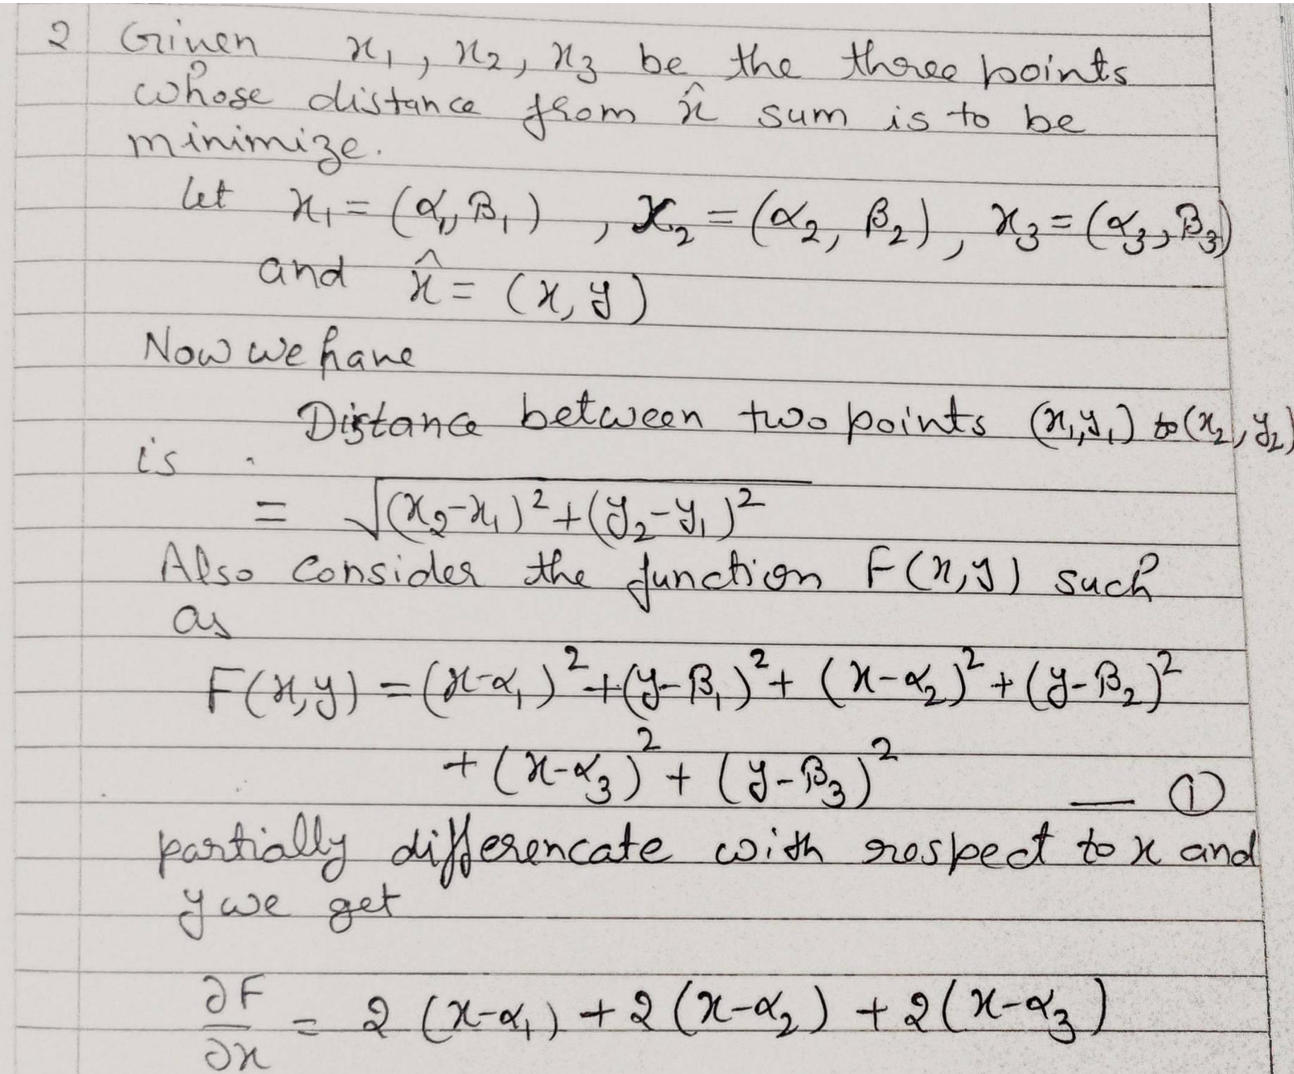 2 Given x₁, x₂, x₃ be the three points
whose distance from x̂ sum is to be
minimize.
let x₁ = (α₁, β₁) , x₂ = (α₂, β₂), x₃ = (α₃, β₃)
and x̂ = (x, y)
Now we have
Distance between two points (x₁,y₁) to (x₂, y₂)
is
= √((x₂-x₁)²+(y₂-y₁)²)
Also consider the function F(x,y) such
as
F(x,y) = (x-α₁)²+(y-β₁)²+ (x-α₂)²+(y-β₂)²
+(x-α₃)²+ (y-β₃)² — ①
partially differencate with respect to x and
y we get
∂F/∂x = 2 (x-α₁) + 2 (x-α₂) + 2(x-α₃)